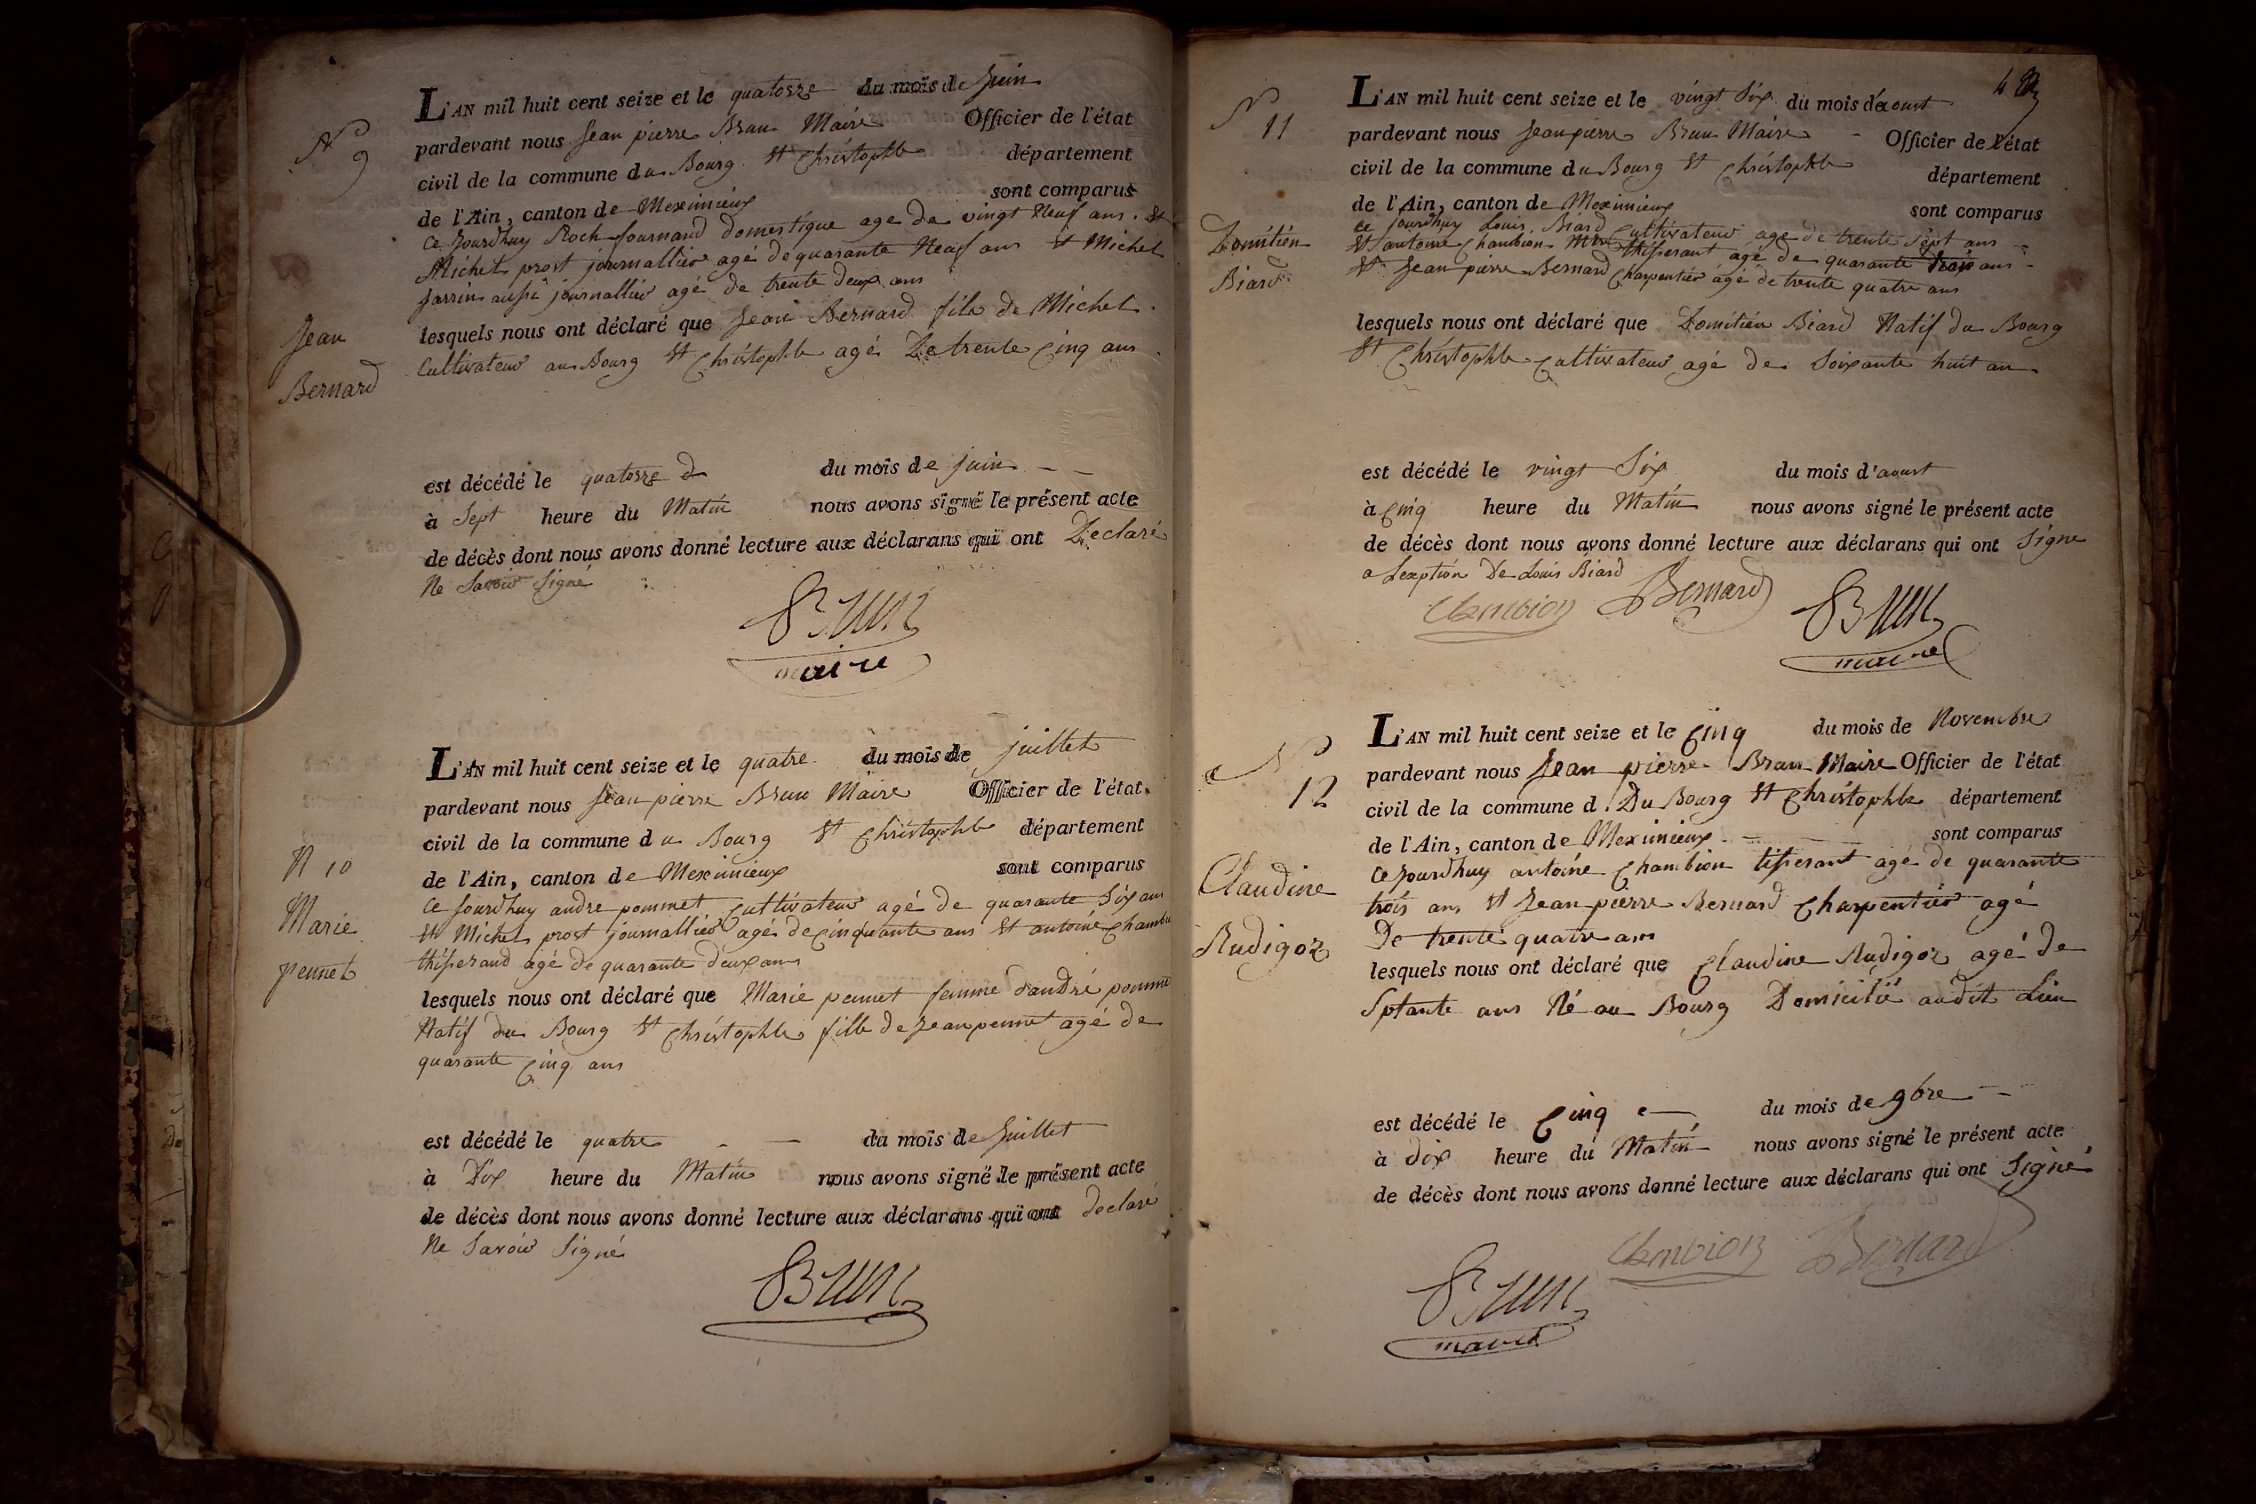 N° 9
Jean
Bernard
L'AN mil huit cent seize et le quatorze du mois de Juin
pardevant nous Jean pierre Brun Maire Officier de l'état
civil de la commune du Bourg St Christophle département
de l'Ain, canton de Meximieux sont comparus
Ce Jourdhuy Roch fournand domestique age de vingt Neuf ans. Et
Michel prost journallier agé de quarante Neuf ans et Michel
Jarrin aussi journallier agé de trente deux ans
lesquels nous ont déclaré que Jean Bernard fils de Michel
Cultivateur au Bourg St Christophle agé De trente Cinq ans
est décédé le quatorze du mois de juin
à Sept heure du Matin nous avons signé le présent acte
de décès dont nous avons donné lecture aux déclarans qui ont Declaré
Ne Savoir Signé
Brun
maire
N 10
Marie
pennet
L'AN mil huit cent seize et le quatre du mois de juillet
pardevant nous Jean pierre Brun Maire Officier de l'état
civil de la commune du Bourg St Christophle département
de l'Ain, canton de Meximieux sont comparus
Ce Jourdhuy andre pommet Cultivateur agé de quarante Six ans
et Michel prost journallier agé de Cinquante ans et antoine Chambion
thisserand agé de quarante deux ans
lesquels nous ont déclaré que Marie pennet femme dandré pommet
Natif du Bourg St Christophle fille de Jean pennet agé de
quarante Cinq ans
est décédé le quatre du mois de Juillet
à Dix heure du Matin nous avons signé le présent acte
de décès dont nous avons donné lecture aux déclarans qui ont declaré
Ne Savoir Signé
Brun
4
N° 11
Domitién
Biard
L'AN mil huit cent seize et le vingt Six du mois d'aoust
pardevant nous Jean pierre Brun Maire Officier de l'état
civil de la commune du Bourg St Christophle département
de l'Ain, canton de Meximieux sont comparus
ce jourdhuy Louis Biard Cultivateur age de trente Sept ans
Et antoine Chambion thisserant agé de quarante trois ans
Et Jean pierre Bernard Charpentier agé de trente quatre ans
lesquels nous ont déclaré que Domitién Biard Natif du Bourg
St Christophle Cultivateur agé de Soixante huit an
est décédé le vingt Six du mois d'aoust
à Cinq heure du Matin nous avons signé le présent acte
de décès dont nous avons donné lecture aux déclarans qui ont Signe
a Lexeption De Louis Biard
Chambion Bernard Brun
maire
N° 12
Claudine
Rudigoz
L'AN mil huit cent seize et le Cinq du mois de Novembre
pardevant nous Jean pierre Brun Maire Officier de l'état
civil de la commune d. Du Bourg St Christophle département
de l'Ain, canton de Meximieux sont comparus
Ce Jourdhuy antoine Chambion tisserant agé de quarante
trois ans et Jean pierre Bernard Charpentier agé
De trente quatre ans
lesquels nous ont déclaré que Claudine Rudigoz agé de
Septante ans Né au Bourg Domicilié audit Lieu
est décédé le Cinq du mois de 9bre
à dix heure du Matin nous avons signé le présent acte
de décès dont nous avons donné lecture aux déclarans qui ont Signé
Chambion Bernard
Brun
maire